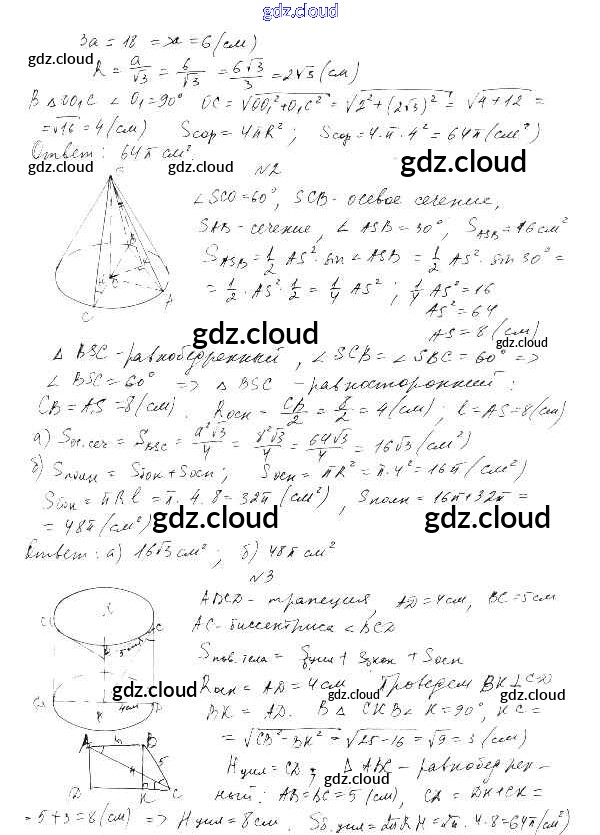 gdz.cloud
3a = 18 => a = 6 (см)
R = a/√3 = 6/√3 = 6√3/3 = 2√3 (см)
В △ OO₁C ∠ O₁ = 90° OC = √OO₁² + O₁C² = √2² + (2√3)² = √4 + 12 =
= √16 = 4 (см) Sсфр = 4πR²; Sсфр = 4·π·4² = 64π (см²)
Ответ: 64π см².
N2
∠SCO = 60°, SCB - осевое сечение,
SAB - сечение, ∠ ASB = 30°, S ASB = 16 см²
S ASB = 1/2 AS² · sin ∠ ASB = 1/2 AS² · sin 30° =
= 1/2 · AS² · 1/2 = 1/4 AS²; 1/4 AS² = 16
AS² = 64
AS = 8 (см)
△ BSC - равнобедренный, ∠ SCB = ∠ SBC = 60° =>
∠ BSC = 60° => △ BSC - равносторонний:
CB = AS = 8 (см). Rосн = CB/2 = 8/2 = 4 (см); l = AS = 8 (см)
а) Sос.сеч = S BSC = a²√3/4 = 8²√3/4 = 64√3/4 = 16√3 (см²)
б) Sполн = Sбок + Sосн; Sосн = πR² = π·4² = 16π (см²)
Sбок = πRl = π·4·8 = 32π (см²), Sполн = 16π + 32π =
= 48π (см²)
Ответ: а) 16√3 см²; б) 48π см²
N3
ABCD - трапеция, AD = 4 см, BC = 5 см
AC - биссектриса ∠ BCD
Sпов.тела = Sцил + Sкон + Sосн
Rосн = AD = 4 см. Проведем BK ⊥ CD
BK = AD. В △ CKB ∠ K = 90°, KC =
= √CB² - BK² = √25 - 16 = √9 = 3 (см)
Hцил = CD; △ ABC - равнобедрен-
ный: AB = BC = 5 (см), CD = DK + CK =
= 5 + 3 = 8 (см) => Hцил = 8 см. Sб.цил = 2πRH = 2π·4·8 = 64π (см²)